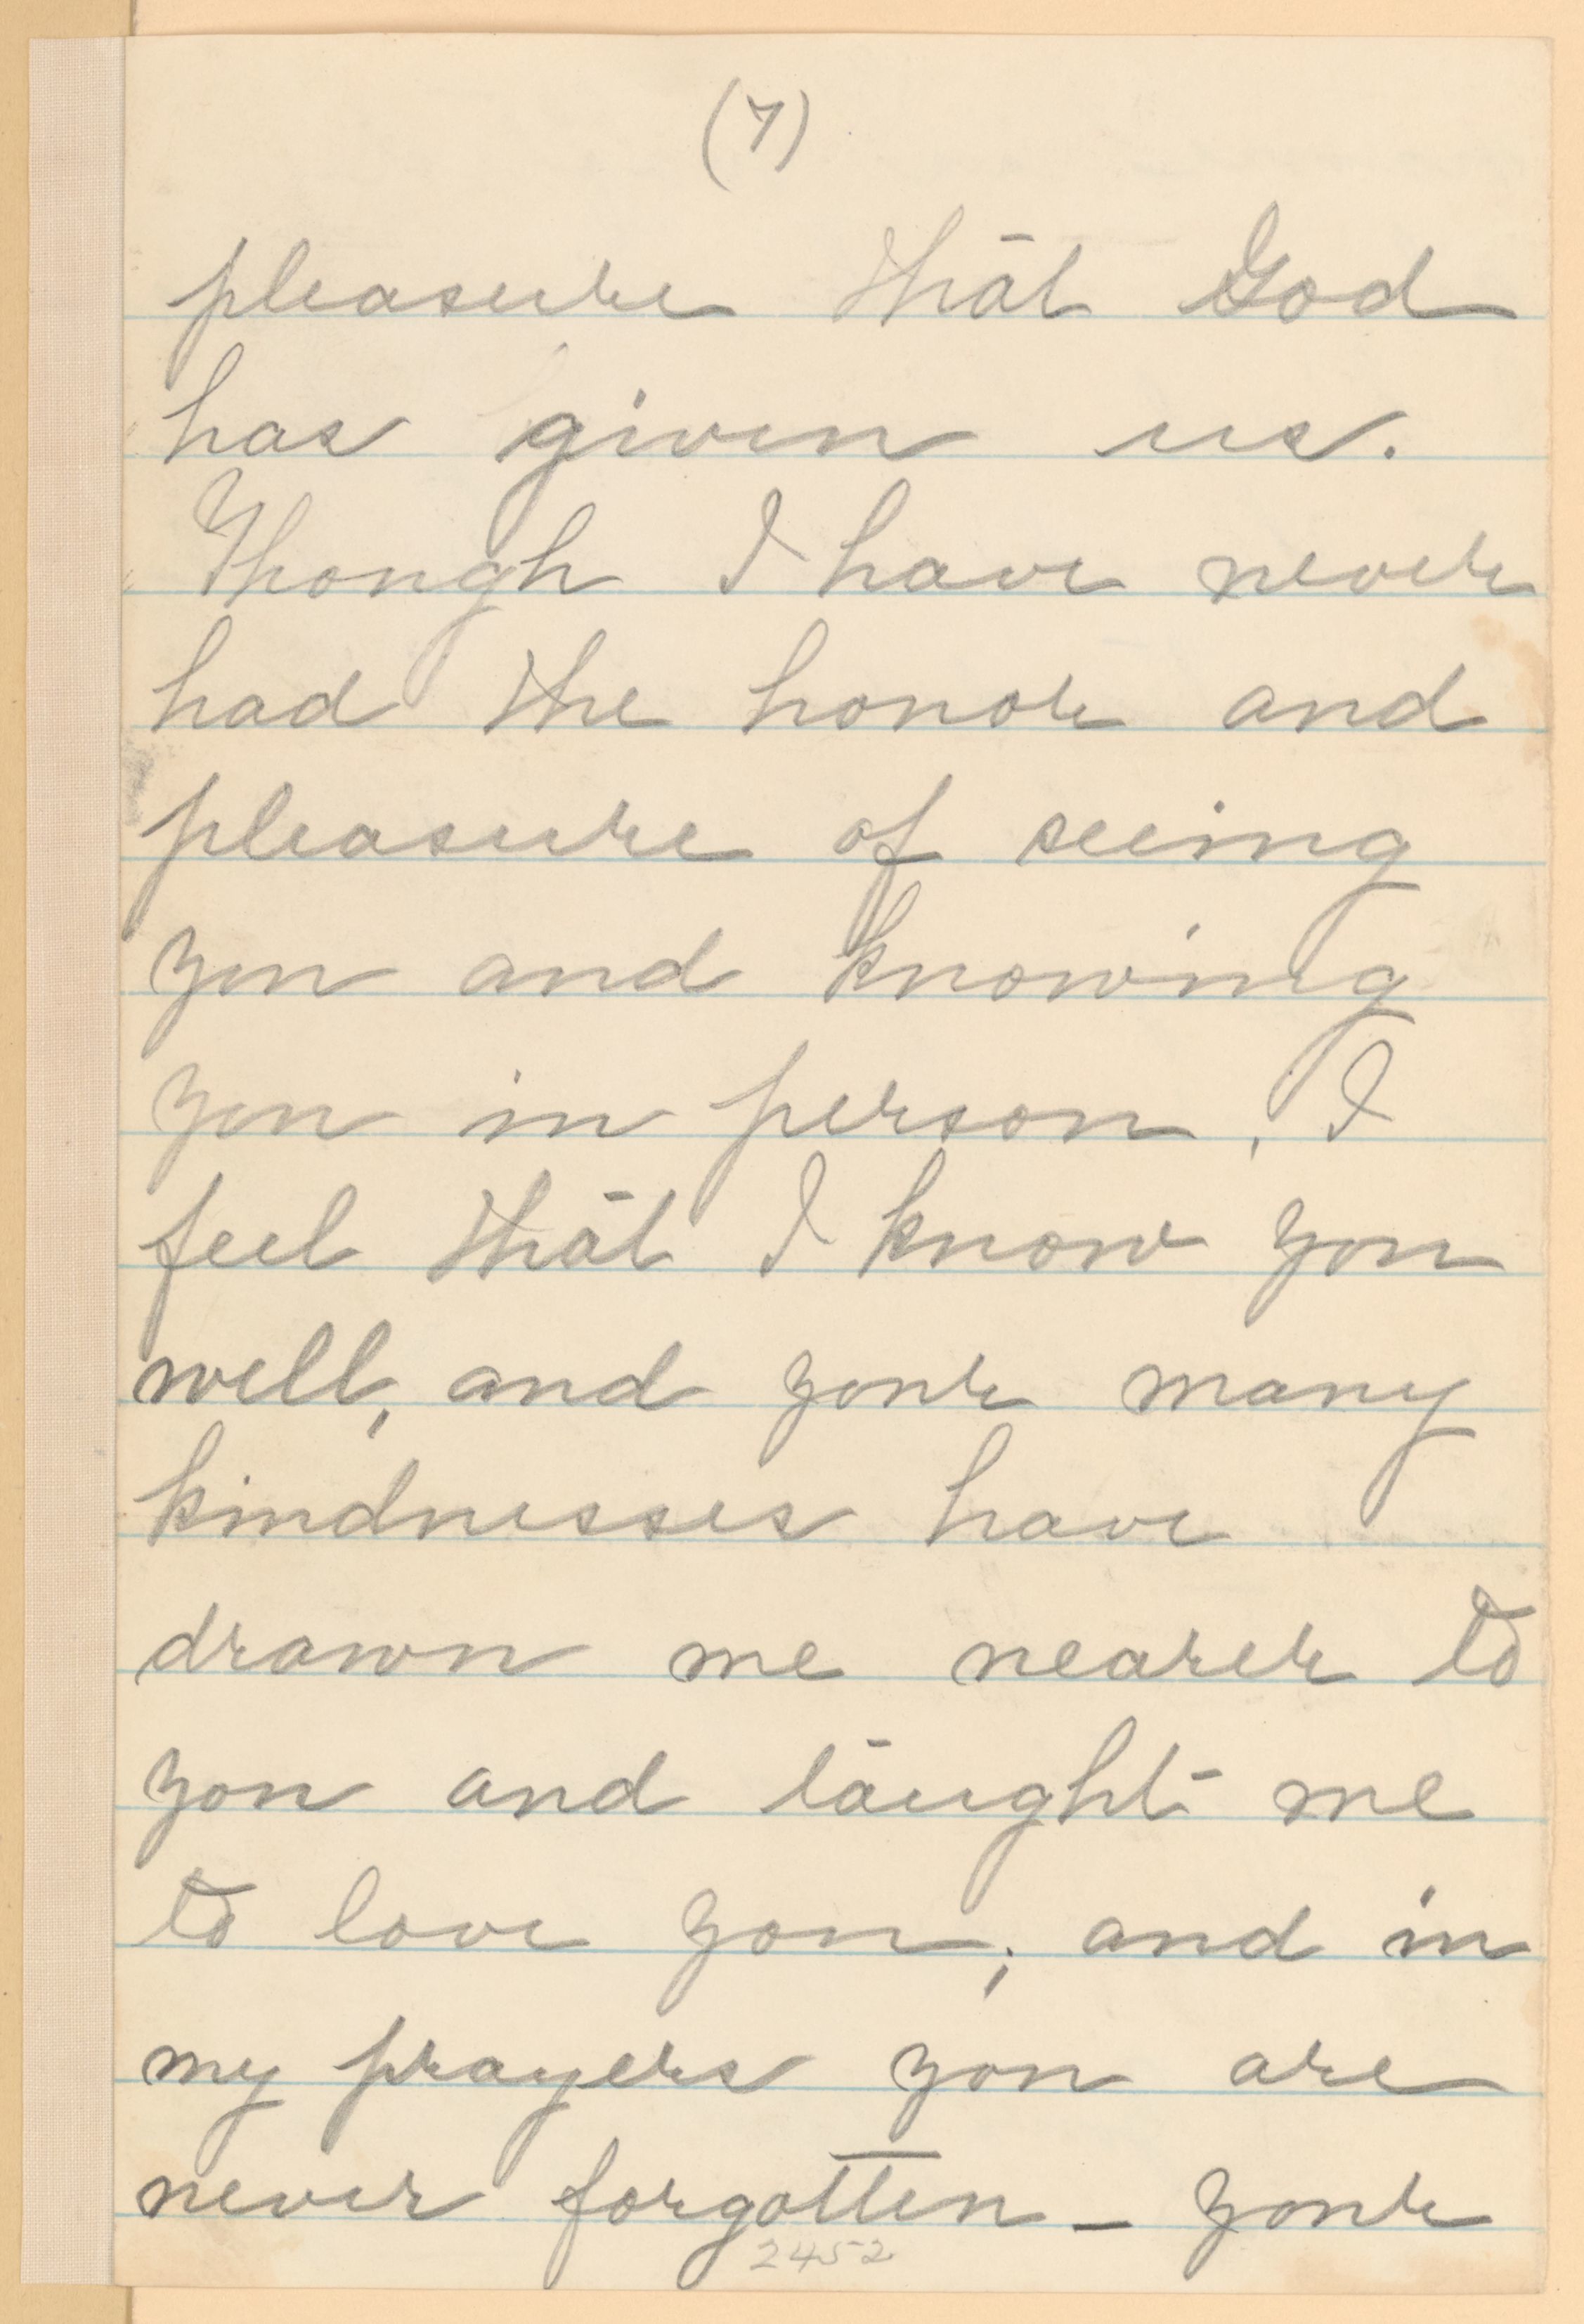 (7)
pleasure that God
has given us.
Though I have never
had the honor and
pleasure of seeing
you and knowing
you in person, I
feel that I know you
well, and your many
kindnesses have
drawn me nearer to
you and taught me
to love you; and in
my prayers you are
never forgotten - your
2452